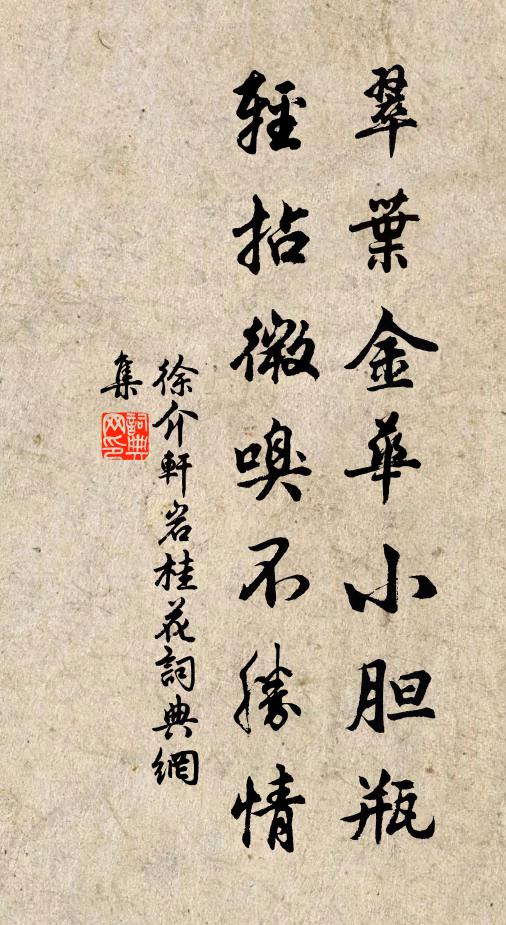 翠葉金華小胆瓶
輕拈微嗅不勝情
徐介軒岩桂花詞典網
集
詞典
网印